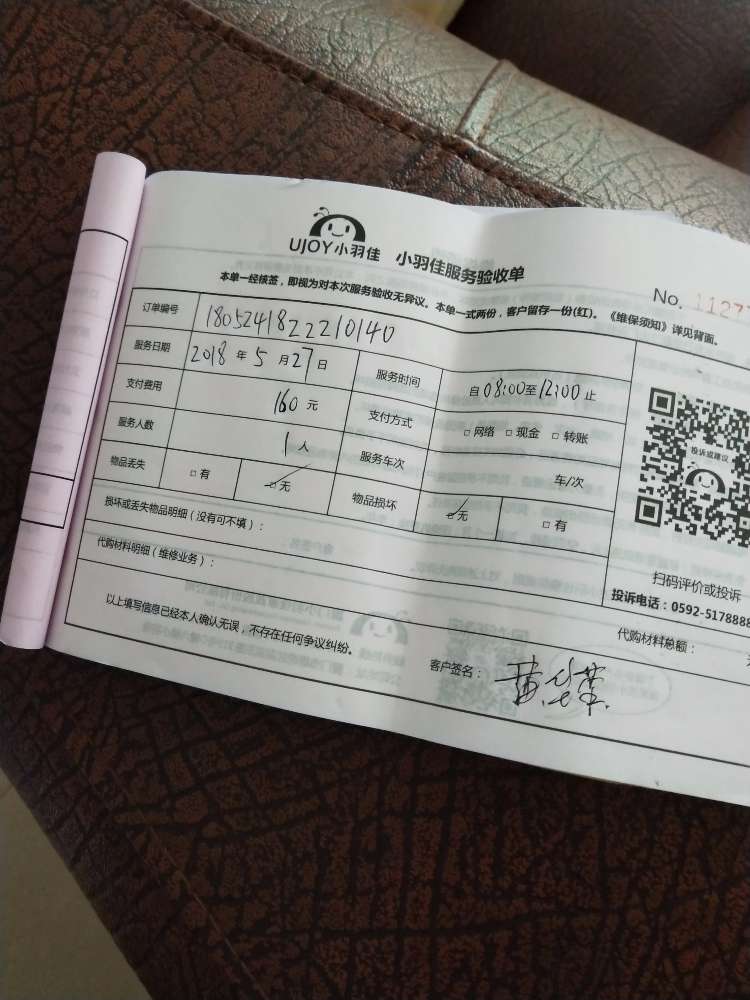 UJOY小羽佳 小羽佳服务验收单
No. 11277
本单一经核签，即视为对本次服务验收无异议。本单一式两份，客户留存一份(红)。《维保须知》详见背面。
订单编号 1805241822210140
服务日期 2018 年 5 月 27 日 服务时间 自 08:00 至 12:00 止
支付费用 160 元 支付方式 □ 网络 □ 现金 □ 转账
服务人数 1 人 服务车次 车/次
物品丢失 □ 有 □ 无 物品损坏 □ 无 □ 有
投诉或建议
损坏或丢失物品明细（没有可不填）：
扫码评价或投诉
投诉电话：0592-5178888
代购材料明细（维修业务）：
代购材料总额：
以上填写信息已经本人确认无误，不存在任何争议纠纷。
客户签名：